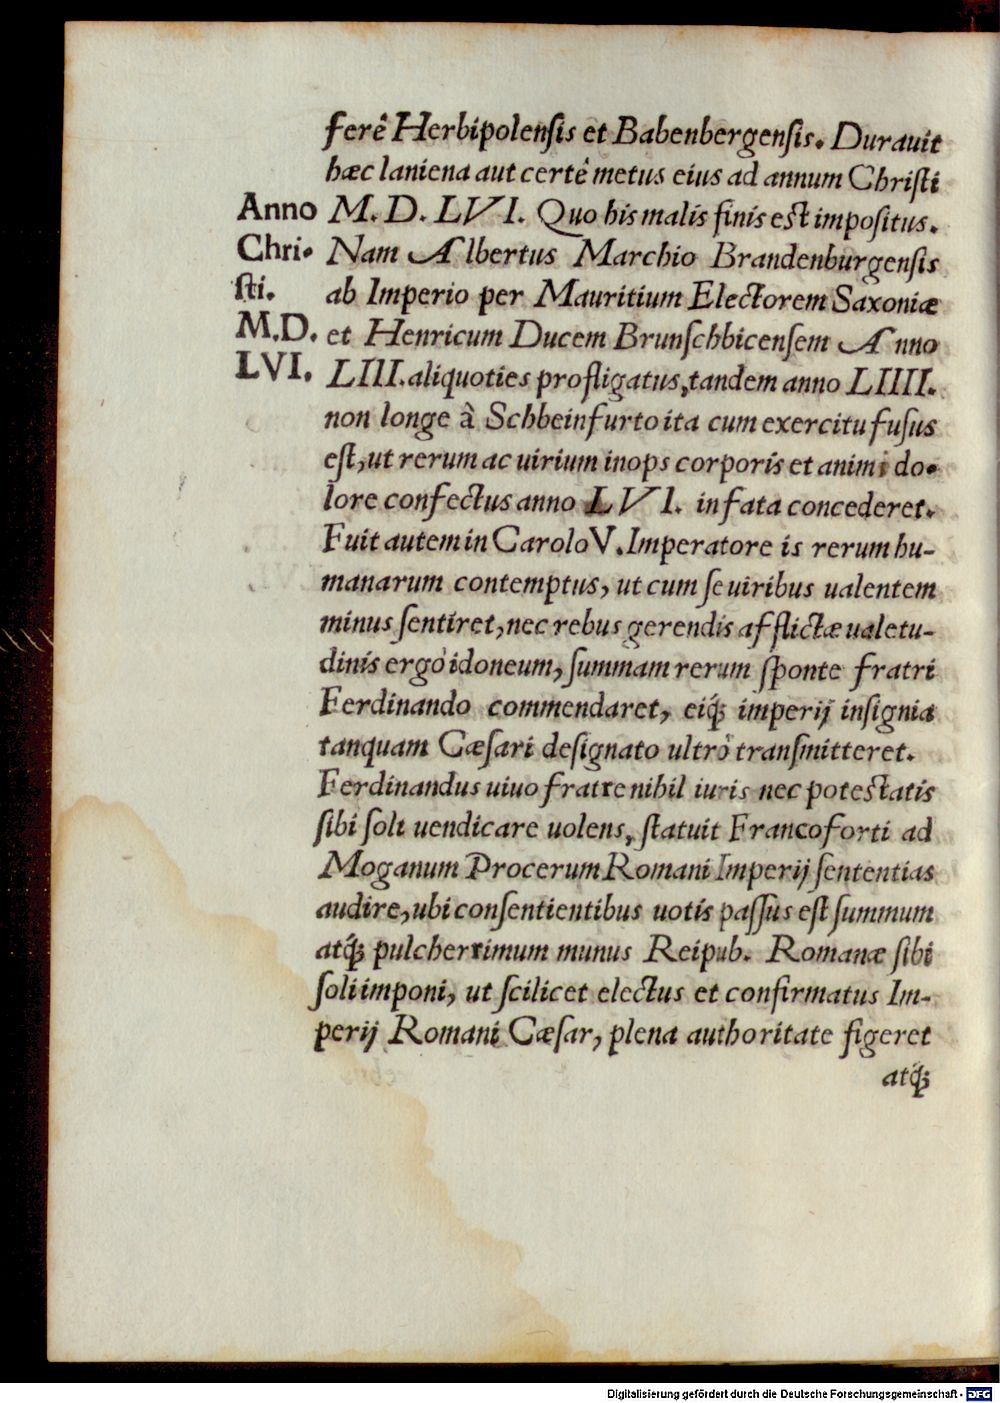 ferè Herbipolenſis et Babenbergenſis. Durauit
hæc laniena aut certè metus eius ad annum Chriſti
Anno
Chri-
ſti.
M.D.
LVI.
M. D. LVI. Quo his malis finis est impoſitus.
Nam Albertus Marchio Brandenburgenſis
ab Imperio per Mauritium Electorem Saxoniæ
et Henricum Ducem Brunſchbicenſem Anno
LIII. aliquoties profligatus, tandem anno LIIII.
non longe à Schbeinfurto ita cum exercitu fuſus
eſt, ut rerum ac uirium inops corporis et animi do-
lore confectus anno LVI. in fata concederet.
Fuit autem in Carolo V. Imperatore is rerum hu-
manarum contemptus, ut cum ſe uiribus ualentem
minus ſentiret, nec rebus gerendis afflictæ ualetu-
dinis ergò idoneum, ſummam rerum ſponte fratri
Ferdinando commendaret, eiq́; imperij inſignia
tanquam Cæſari deſignato ultrò tranſmitteret.
Ferdinandus uiuo fratre nihil iuris nec potestatis
ſibi ſoli uendicare uolens, ſtatuit Francoforti ad
Moganum Procerum Romani Imperij ſententias
audire, ubi conſentientibus uotis paſſus eſt ſummum
atq́; pulcherrimum munus Reipub. Romanæ ſibi
ſoli imponi, ut ſcilicet electus et confirmatus Im-
perij Romani Cæſar, plena authoritate figeret
atq́;
Digitalisierung gefördert durch die Deutsche Forschungsgemeinschaft - DFG